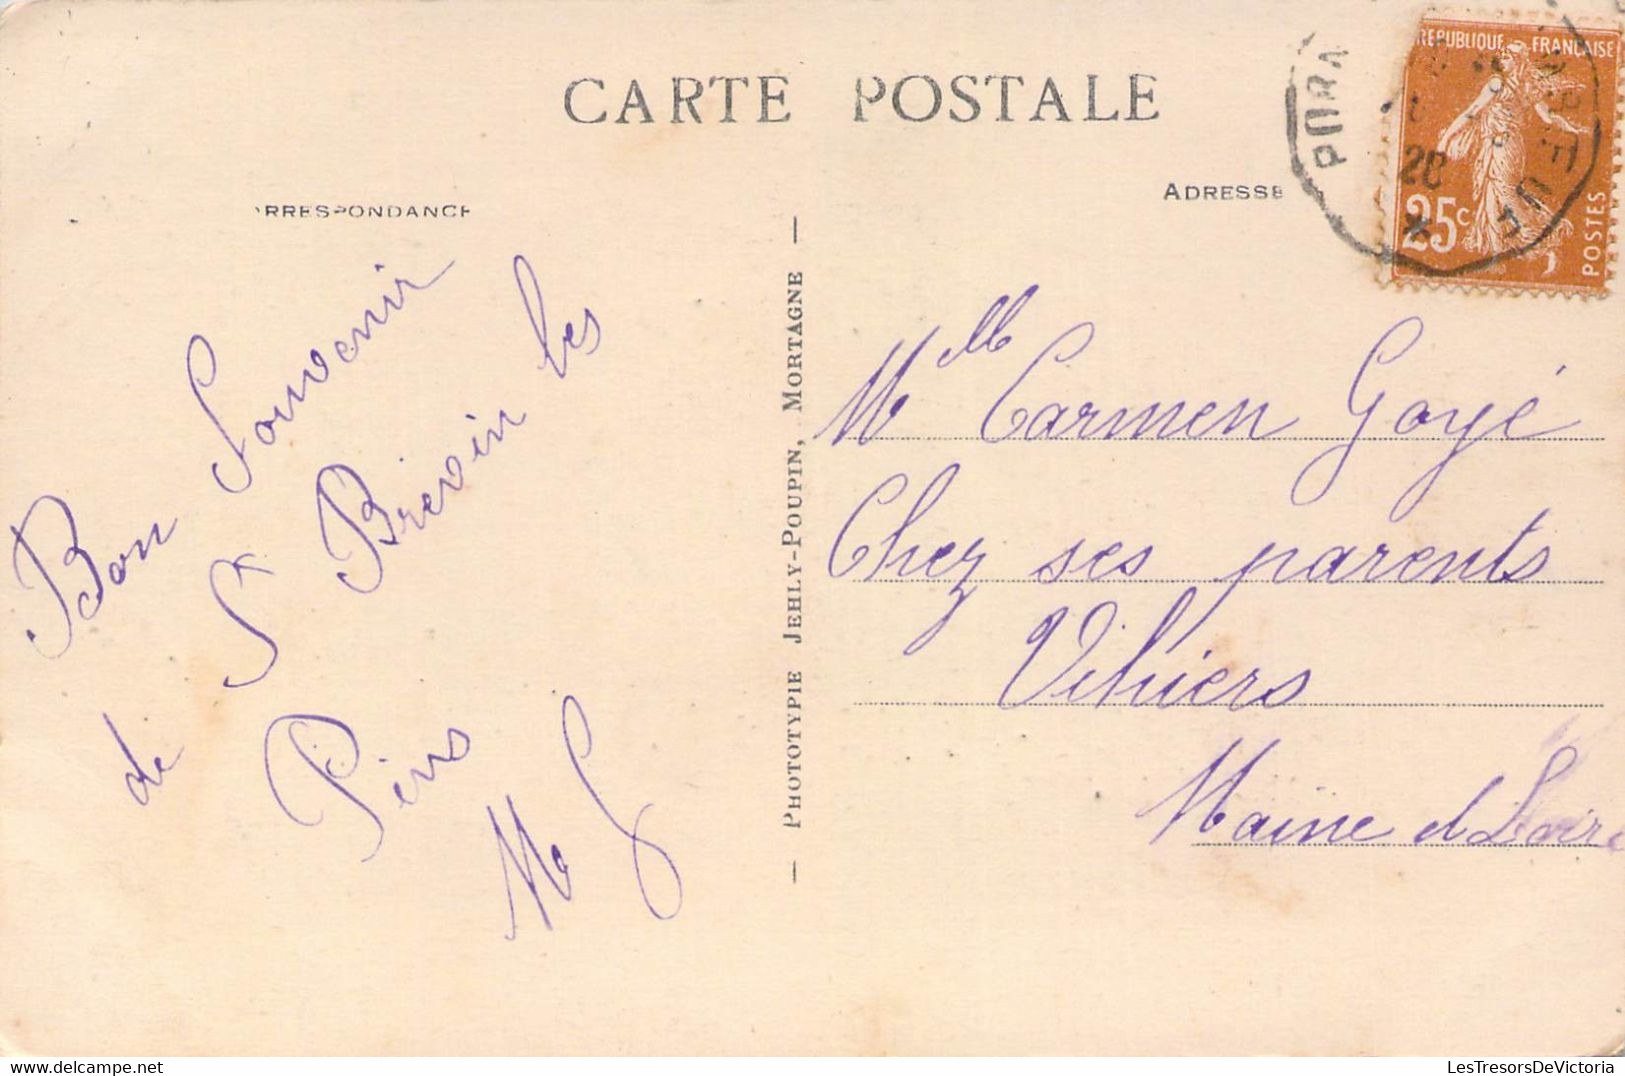 CARTE POSTALE
RRESPONDANCE
ADRESSE
RÉPUBLIQUE FRANÇAISE
25c
POSTES
20
Bon Souvenir
de St Brévin les
Pins
M G
PHOTOTYPIE JEHLY-POUPIN, MORTAGNE
Mlle Carmen Goyé
Chez ses parents
Vihiers
Maine et Loire
LesTresorsDeVictoria